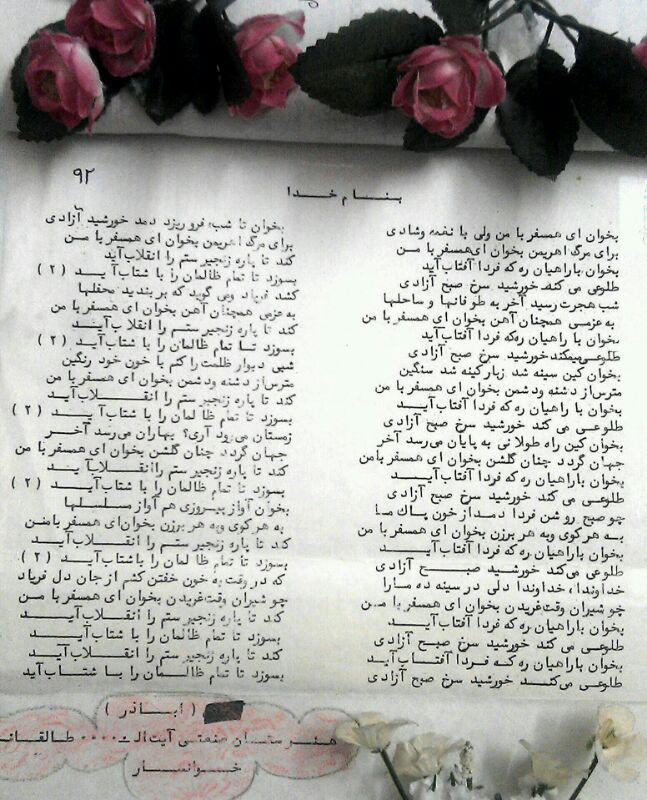 ۹۲
بنـــام خـــدا
بخوان ای همسفر با من ولی با نغمه وشادی
برای مرگ اهریمن بخوان ای همسفر با من
بخوان باراهیان ره که فردا آفتاب آید
طلوعی می کند خورشید سرخ صبح آزادی
شب هجرت رسید آخر به طوفانها و ساحلها
به عزمسی همچنان آهن بخوان ای همسفر با من
بخوان با راهیان ره که فردا آفتاب آید
طلوعی میکند خورشید سرخ صبح آزادی
بخوان کین سینه شد زبار کینه شد سنگین
مترس از دشنه ودشمن بخوان ای همسفر با من
بخوان با راهیان ره که فردا آفتاب آیـــد
طلوعی می کند خورشید سرخ صبح آزادی
بخوان کین راه طولانی به پایان می رسد آخر
جهان گردد چنان گلشن بخوان ای همسفر بامن
بخوان باراهیان ره که فردا آفتاب آیـــد
طلوعی می کند خورشید سرخ صبح آزادی
چو صبح روشن فردا دمد از خون پاک ما
به هر کوی وبه هر برزن بخوان ای همسفر با من
بخوان باراهیان ره که فردا آفتاب آیـــد
طلوعی می کند خورشید سرخ صبـــح آزادی
خداوندا، خداوندا دلی در سینه ده مــارا
چو شیران وقت غریدن بخوان ای همسفر با مــن
بخوان باراهیان ره که فردا آفتاب آیـــد
طلوعی می کند خورشید سرخ صبــح آزادی
بخوان باراهیان ره کــه فــردا آفتــاب آیــد
طلوعی می کنــــد خورشید سرخ صبح آزادی
بخوان تا شب فرو ریزد دمد خورشید آزادی
برای مرگ اهریمن بخوان ای همسفر با مــن
کند تا پاره زنجیر ستم را انقلاب آید
بسوزد تا تمام ظالمان را با شتاب آ یـــد ( ۲ )
کشد فریاد ومی گوید که بر بندید محفلها
به عزمی همچنان آهن بخوان ای همسفر با من
کند تا پاره زنجیر ستــم را انقلاب آیـــد
بسوزد تــا تمام ظالمان را با شتاب آیــد ( ۲ )
شبی دیوار ظلمت را کنم با خون خود رنگین
مترس از دشنه ودشمن بخوان ای همسفر با من
کند تا پاره زنجیر ستم را انقـــلاب آیـــد
بسوزد تا تمام ظالمان را با شتاب آ یــــد ( ۲ )
زمستان می رود آری؟ بهاران می رسد آخــر
جهان گردد چنان گلشن بخوان ای همسفر با من
کند تا پاره زنجیر ستم را انقــلاب آ یــد
بسوزد تا تمام ظالمان را با شتاب آیـــد ( ۲ )
بخوان آواز پیــروزی هم آواز مسلسلها
به هر کوی وبه هر برزن بخوان ای همسفر بامن
کند تا پاره زنجیر ستم را انقلاب آیــــد
بسوزد تا تمام ظالمان را باشتاب آیـــد ( ۲ )
که در وقت به خون خفتن کشم از جان دل فریاد
چو شیران وقت غریدن بخوان ای همسفر با مــن
کند تا پاره زنجیر ستم را انقـــلاب آیــــد
بسوزد تا تمام ظالمان را با شتاب آیـــد
کند تا پاره زنجیر ستم را انقــلاب آیـــد
بسوزد تا تمام ظالــمان را بــا شتــاب آید
( ابــاذر )
هنرستــان صنعتــی آیت الــه.... طالقانــ
خــوانســار